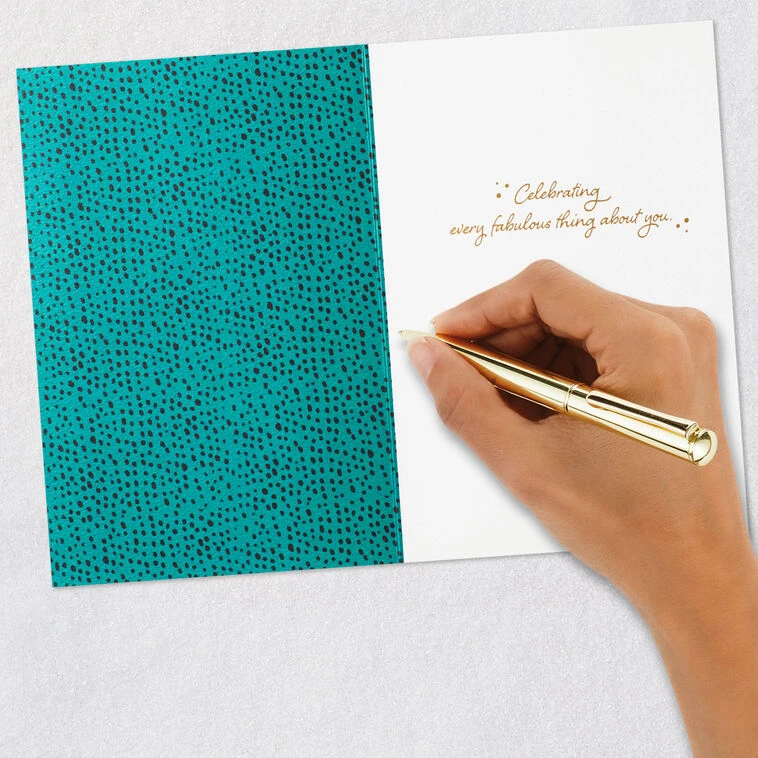 Celebrating
every fabulous thing about you.